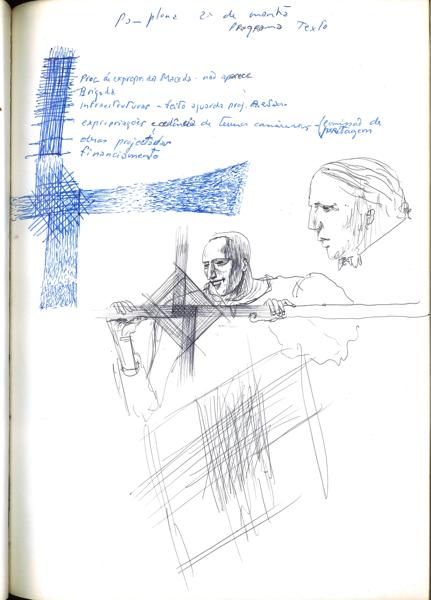 Po_ plano 2ª de manhã
PROGRAMA Texto
Proc. de expropr. da Maceda - não aparece
Brigada
infraestruturas - texto aguarda proj.
expropriações e cedência de terrenos camarários - comissão de
obras projectadas
financiamento